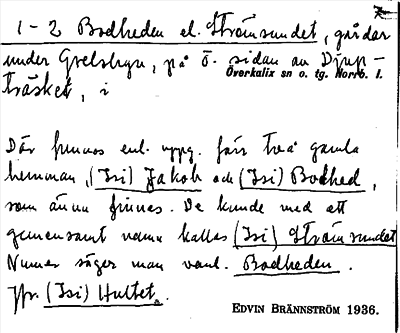 1-2 Bodheden el. Strömsundet, gårdar
under Grelsbyn, på ö. sidan av Djup-
träsket, i
Överkalix sn o. tg. Norrb. l.
Där finnas enl. uppg. förr två gamla
hemman, (Isi) Jakob och (Isi) Bodhed,
som ännu finnas. De kunde med ett
gemensamt namn kallas (Isi) Strömsundet
Numer säger man vanl. Bodheden.
Jfr. (Isi) Hultet.
EDVIN BRÄNNSTRÖM 1936.